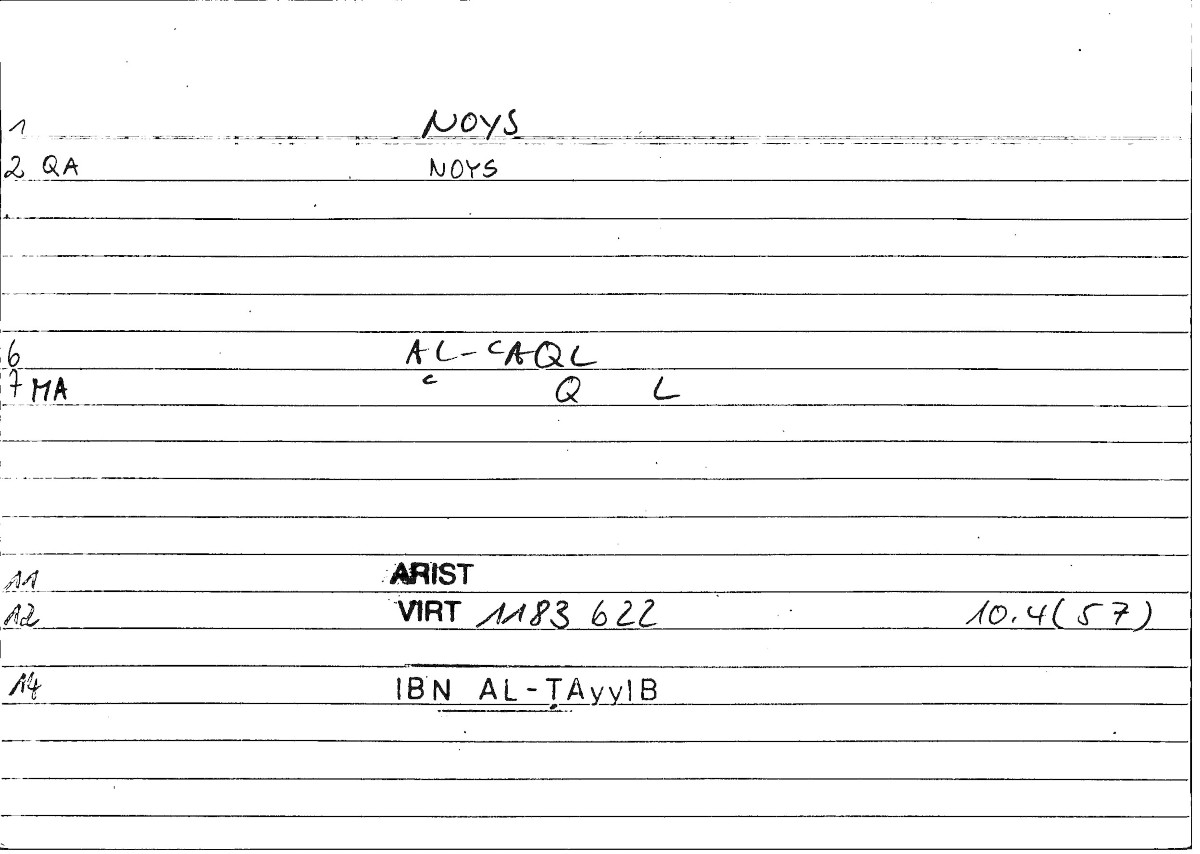 1 NOYS
2 QA NOYS
6 AL-ᶜAQL
7 MA ᶜ Q L
11 ARIST
12 VIRT 1183 622 10.4(57)
14 IBN AL-ṬAyyIB